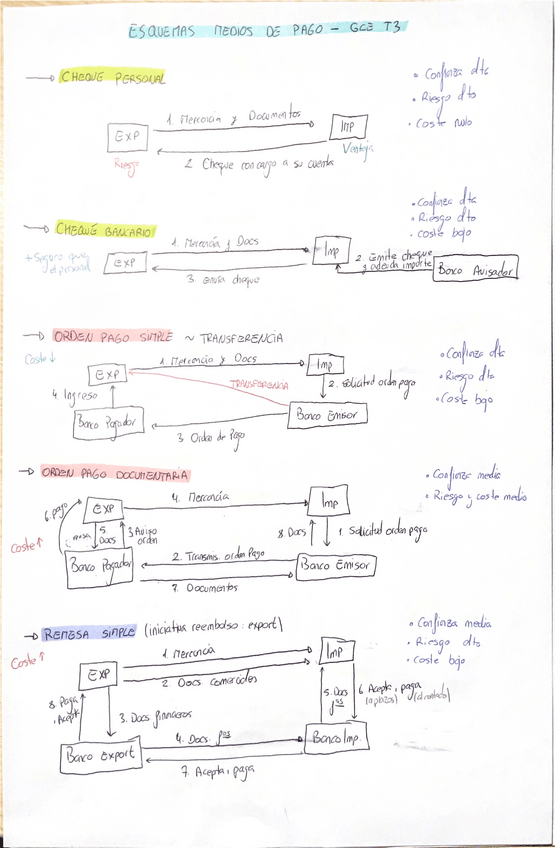 ESQUEMAS MEDIOS DE PAGO - GCE T3
→ CHEQUE PERSONAL
• Confianza dta
• Riesgo dto
• Coste nulo
1. Mercancía y Documentos
EXP
Imp
Riesgo
Ventaja
2. Cheque con cargo a su cuenta
→ CHEQUE BANCARIO
• Confianza dta
• Riesgo dto
• Coste bajo
+ Seguro que
el personal
1. Mercancía y Docs
EXP
Imp
2. Emite cheque
y adeuda importe
Banco Avisador
3. envía cheque
→ ORDEN PAGO SIMPLE ~ TRANSFERENCIA
Coste ↓
• Confianza dta
• Riesgo dta
• Coste bajo
1. Mercancía y Docs
EXP
Imp
TRANSFERENCIA
2. Solicitud orden pago
4. Ingreso
Banco Pagador
Banco Emisor
3. Orden de Pago
→ ORDEN PAGO DOCUMENTARIA
• Confianza media
• Riesgo y coste medio
6. pago
4. Mercancía
EXP
Imp
Coste ↑
5.
Docs
3. Aviso
orden
8. Docs
1. Solicitud orden pago
2. Transmis. orden Pago
Banco Pagador
Banco Emisor
7. Documentos
→ REMESA SIMPLE (iniciativa reembolso: export)
Coste ↑
• Confianza media
• Riesgo dto
• Coste bajo
1. Mercancía
EXP
Imp
2. Docs comerciales
8. Paga
, Acepta
3. Docs financieros
5. Docs
fros
6. Acepta, paga
(a plazos) (al contado)
4. Docs fros
Banco Export
Banco Imp.
7. Acepta, paga